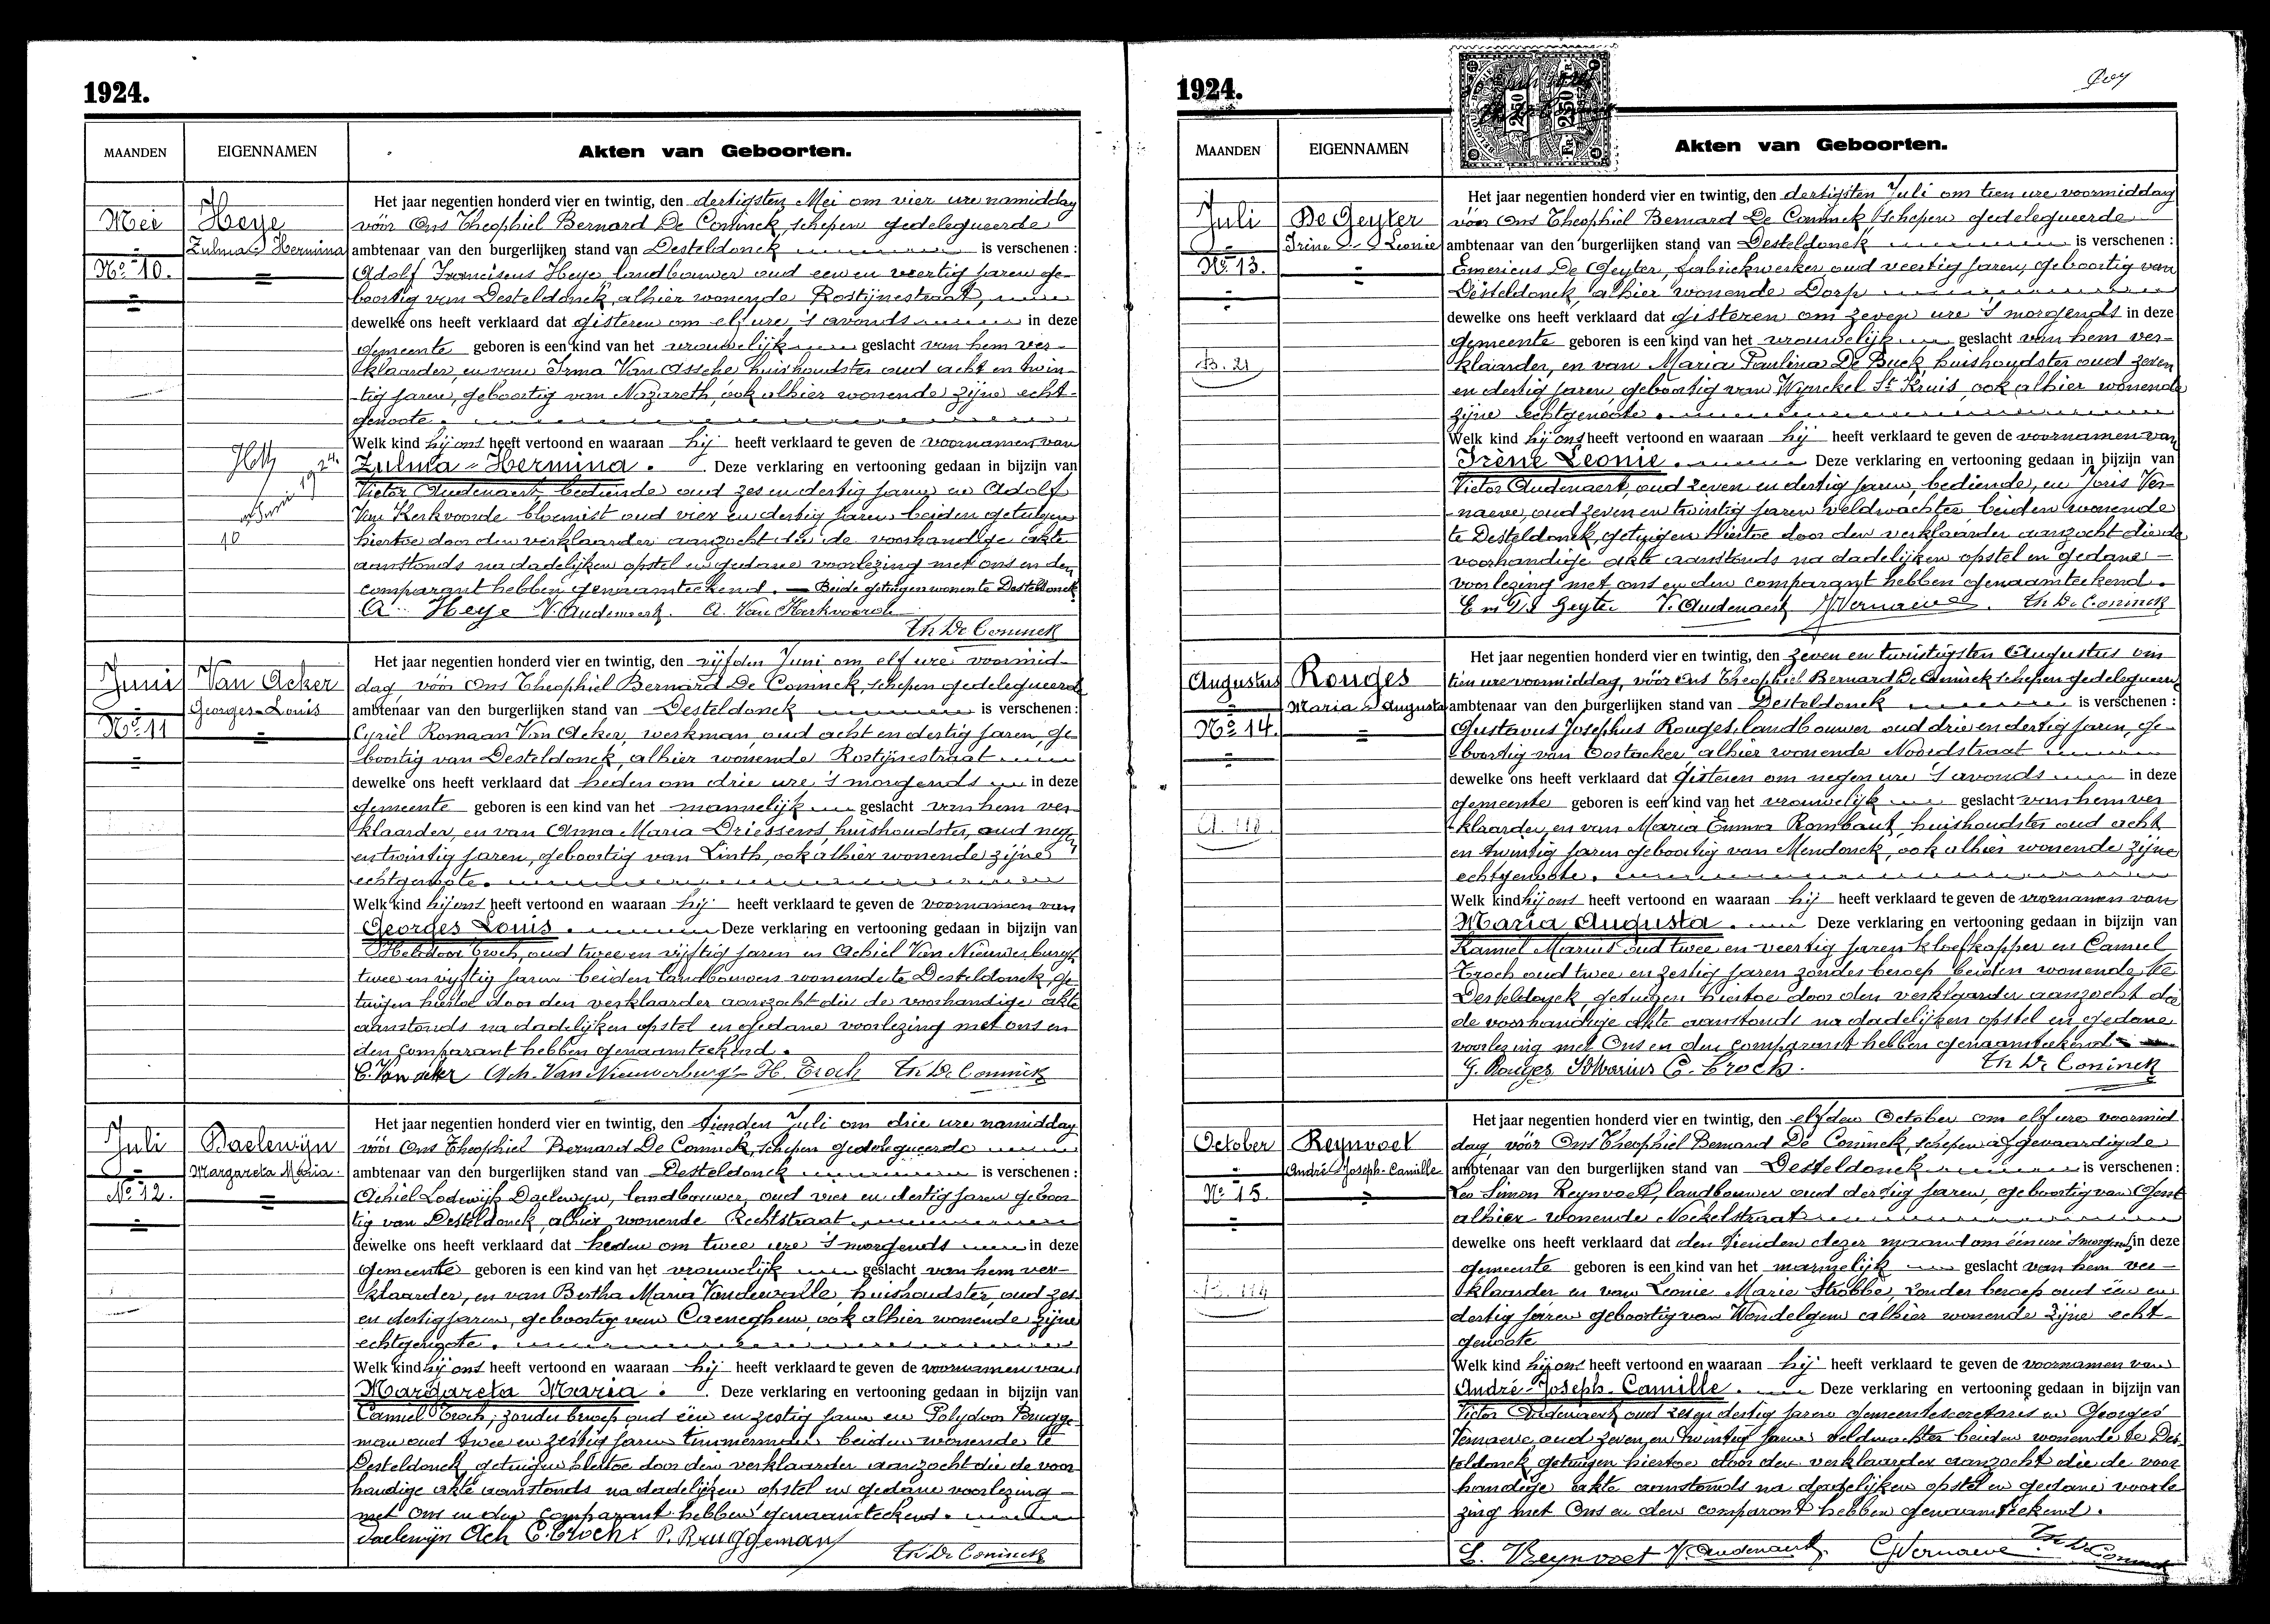 1924.
MAANDEN
EIGENNAMEN
Akten van Geboorten.
Mei
Heye
Zulma-Hermina
No 10.
Het jaar negentien honderd vier en twintig, den dertigsten Mei om vier ure namiddag
vóór Ons Theophiel Bernard De Coninck, schepen gedelegueerde
ambtenaar van den burgerlijken stand van Desteldonck is verschenen :
Adolf Franciscus Heye landbouwer oud een en veertig jaren ge-
boortig van Desteldonck, alhier wonende Rostijnestraat,
dewelke ons heeft verklaard dat gisteren om elf ure 's avonds in deze
gemeente geboren is een kind van het vrouwelijk geslacht van hem ver-
klaarder, en van Irma Van Assche huishoudster oud acht en twin-
tig jaren, geboortig van Nazareth, ook alhier wonende zijne echt-
genoote.
Welk kind hij ons heeft vertoond en waaraan hij heeft verklaard te geven de voornamen van
Zulma-Hermina. Deze verklaring en vertooning gedaan in bijzijn van
Victor Audenaert, bediende oud zes en dertig jaren en Adolf
Van Kerkvoorde bloemist oud vier en dertig jaren beiden getuigen
hiertoe door den verklaarder aanzocht die de voorhandige akte
aanstonds na dadelijken opstel en gedane voorlezing met ons en den
comparant hebben genaamteekend. Beide getuigen wonen te Desteldonck
A. Heye V. Audenaert. A. Van Kerkvoorde
Th De Coninck
Juni
Van Acker
Georges-Louis
No 11
Het jaar negentien honderd vier en twintig, den vijfden Juni om elf ure voormid-
dag, vóór Ons Theophiel Bernard De Coninck, schepen gedelegueerde
ambtenaar van den burgerlijken stand van Desteldonck is verschenen :
Cyriel Romaan Van Acker, werkman, oud acht en dertig jaren, ge-
boortig van Desteldonck, alhier wonende Rostijnestraat
dewelke ons heeft verklaard dat heden om drie ure 's morgends in deze
gemeente geboren is een kind van het mannelijk geslacht van hem ver-
klaarder, en van Anna Maria Driessens, huishoudster, oud negen
en twintig jaren, geboortig van Linth, ook alhier wonende zijne
echtgenoote.
Welk kind hij ons heeft vertoond en waaraan hij heeft verklaard te geven de voornamen van
Georges Louis. Deze verklaring en vertooning gedaan in bijzijn van
Troch, oud twee en vijftig jaren en Achiel Van Nieuwenburgh
twee en vijftig jaren beiden landbouwers wonende te Desteldonck, ge-
tuigen hiertoe door den verklaarder aanzocht die de voorhandige akte
aanstonds na dadelijken opstel en gedane voorlezing met ons en
den comparant hebben genaamteekend.
C. Van acker Ach. Van Nieuwenburgh H. Troch Th De Coninck
Juli
Daelewijn
Margareta Maria
No 12.
Het jaar negentien honderd vier en twintig, den tienden Juli om drie ure namiddag
vóór Ons Theophiel Bernard De Coninck, schepen gedelegueerde
ambtenaar van den burgerlijken stand van Desteldonck is verschenen :
Achiel Lodewijk Daelewijn, landbouwer, oud vier en dertig jaren geboor-
tig van Desteldonck, alhier wonende Rechtstraat
dewelke ons heeft verklaard dat heden om twee ure 's morgends in deze
gemeente geboren is een kind van het vrouwelijk geslacht van hem ver-
klaarder, en van Bertha Maria Vandewalle, huishoudster, oud zes
en dertig jaren, geboortig van Caeneghem, ook alhier wonende zijne
echtgenoote.
Welk kind hij ons heeft vertoond en waaraan hij heeft verklaard te geven de voornamen van
Margareta Maria. Deze verklaring en vertooning gedaan in bijzijn van
Camiel Troch, zonder beroep oud één en zestig jaren en Polydoor Brugge-
man oud twee en zestig jaren timmerman beiden wonende te
Desteldonck getuigen hiertoe door den verklaarder aanzocht die de voor
handige akte aanstonds na dadelijken opstel en gedane voorlezing
met ons en den comparant hebben genaamteekend.
Daelewijn Ach C. Troch P. Bruggeman
Th De Coninck
1924.
MAANDEN
EIGENNAMEN
Akten van Geboorten.
Juli
De Geyter
Irène - Leonie
No 13.
B. 21
Het jaar negentien honderd vier en twintig, den dertigsten Juli om tien ure voormiddag
vóór Ons Theophiel Bernard De Coninck schepen gedelegueerde
ambtenaar van den burgerlijken stand van Desteldonck is verschenen :
Emericus De Geyter, fabriekwerker, oud veertig jaren, geboortig van
Desteldonck, alhier wonende Dorp
dewelke ons heeft verklaard dat gisteren om zeven ure 's morgends in deze
gemeente geboren is een kind van het vrouwelijk geslacht van hem ver-
klaarder, en van Maria Paulina De Buck, huishoudster oud zeven
en dertig jaren, geboortig van Wynckel St Kruis, ook alhier wonende
zijne echtgenoote.
Welk kind hij ons heeft vertoond en waaraan hij heeft verklaard te geven de voornamen van
Irène Leonie. Deze verklaring en vertooning gedaan in bijzijn van
Victor Audenaert, oud zeven en dertig jaren, bediende, en Joris Ver-
naeve, oud zeven en twintig jaren veldwachter beiden wonende
te Desteldonck, getuigen hiertoe door den verklaarder aanzocht die de
voorhandige akte aanstonds na dadelijken opstel en gedane
voorlezing met ons en den comparant hebben genaamteekend.
Em De Geyter V. Audenaert J. Vernaeve. Th De Coninck
Augustus
Rouges
Maria - Augusta
No 14.
Het jaar negentien honderd vier en twintig, den zeven en twintigsten Augustus om
tien ure voormiddag, vóór Ons Theophiel Bernard De Coninck schepen gedelegueerde
ambtenaar van den burgerlijken stand van Desteldonck is verschenen :
Gustavus Josephus Rouges, landbouwer oud drie en dertig jaren, ge-
boortig van Oostacker, alhier wonende Noordstraat
dewelke ons heeft verklaard dat gisteren om negen ure 's avonds in deze
gemeente geboren is een kind van het vrouwelijk geslacht van hem ver
klaarder, en van Maria Emma Rombaut, huishoudster oud acht
en twintig jaren geboortig van Mendonck, ook alhier wonende zijne
echtgenoote.
Welk kind hij ons heeft vertoond en waaraan hij heeft verklaard te geven de voornamen van
Maria Augusta. Deze verklaring en vertooning gedaan in bijzijn van
Kamiel Marius oud twee en veertig jaren kloefkapper en Camiel
Troch oud twee en zestig jaren zonder beroep beiden wonende te
Desteldonck, getuigen hiertoe door den verklaarder aanzocht die
de voorhandige akte aanstonds na dadelijken opstel en gedane
voorlezing met Ons en den comparant hebben genaamteekend
G. Rouges Marius C. Troch. Th De Coninck
October
Reynvoet
André-Joseph-Camille
No 15.
Het jaar negentien honderd vier en twintig, den elfden October om elf ure voormid
dag, vóór Ons Theophiel Bernard De Coninck, schepen afgevaardigde
ambtenaar van den burgerlijken stand van Desteldonck is verschenen :
Leo Simon Reynvoet, landbouwer oud dertig jaren, geboortig van Gent
alhier wonende Nockelstraat
dewelke ons heeft verklaard dat den tienden dezer maand om één ure 's morgends in deze
gemeente geboren is een kind van het mannelijk geslacht van hem ver-
klaarder en van Leonie Marie Strobbe, zonder beroep oud één en
dertig jaren geboortig van Wondelgem alhier wonende zijne echt-
genoote
Welk kind hij ons heeft vertoond en waaraan hij heeft verklaard te geven de voornamen van
André-Joseph-Camille. Deze verklaring en vertooning gedaan in bijzijn van
Victor Audenaert oud zes en dertig jaren gemeentesecretaris en Georges
Vernaeve oud zeven en twintig jaren veldwachter beiden wonende te Des-
teldonck getuigen hiertoe door den verklaarder aanzocht die de voor
handige akte aanstonds na dadelijken opstel en gedane voorle
zing met Ons en den comparant hebben genaamteekend.
L. Reynvoet V. Audenaert. G Vernaeve Th De Coninck